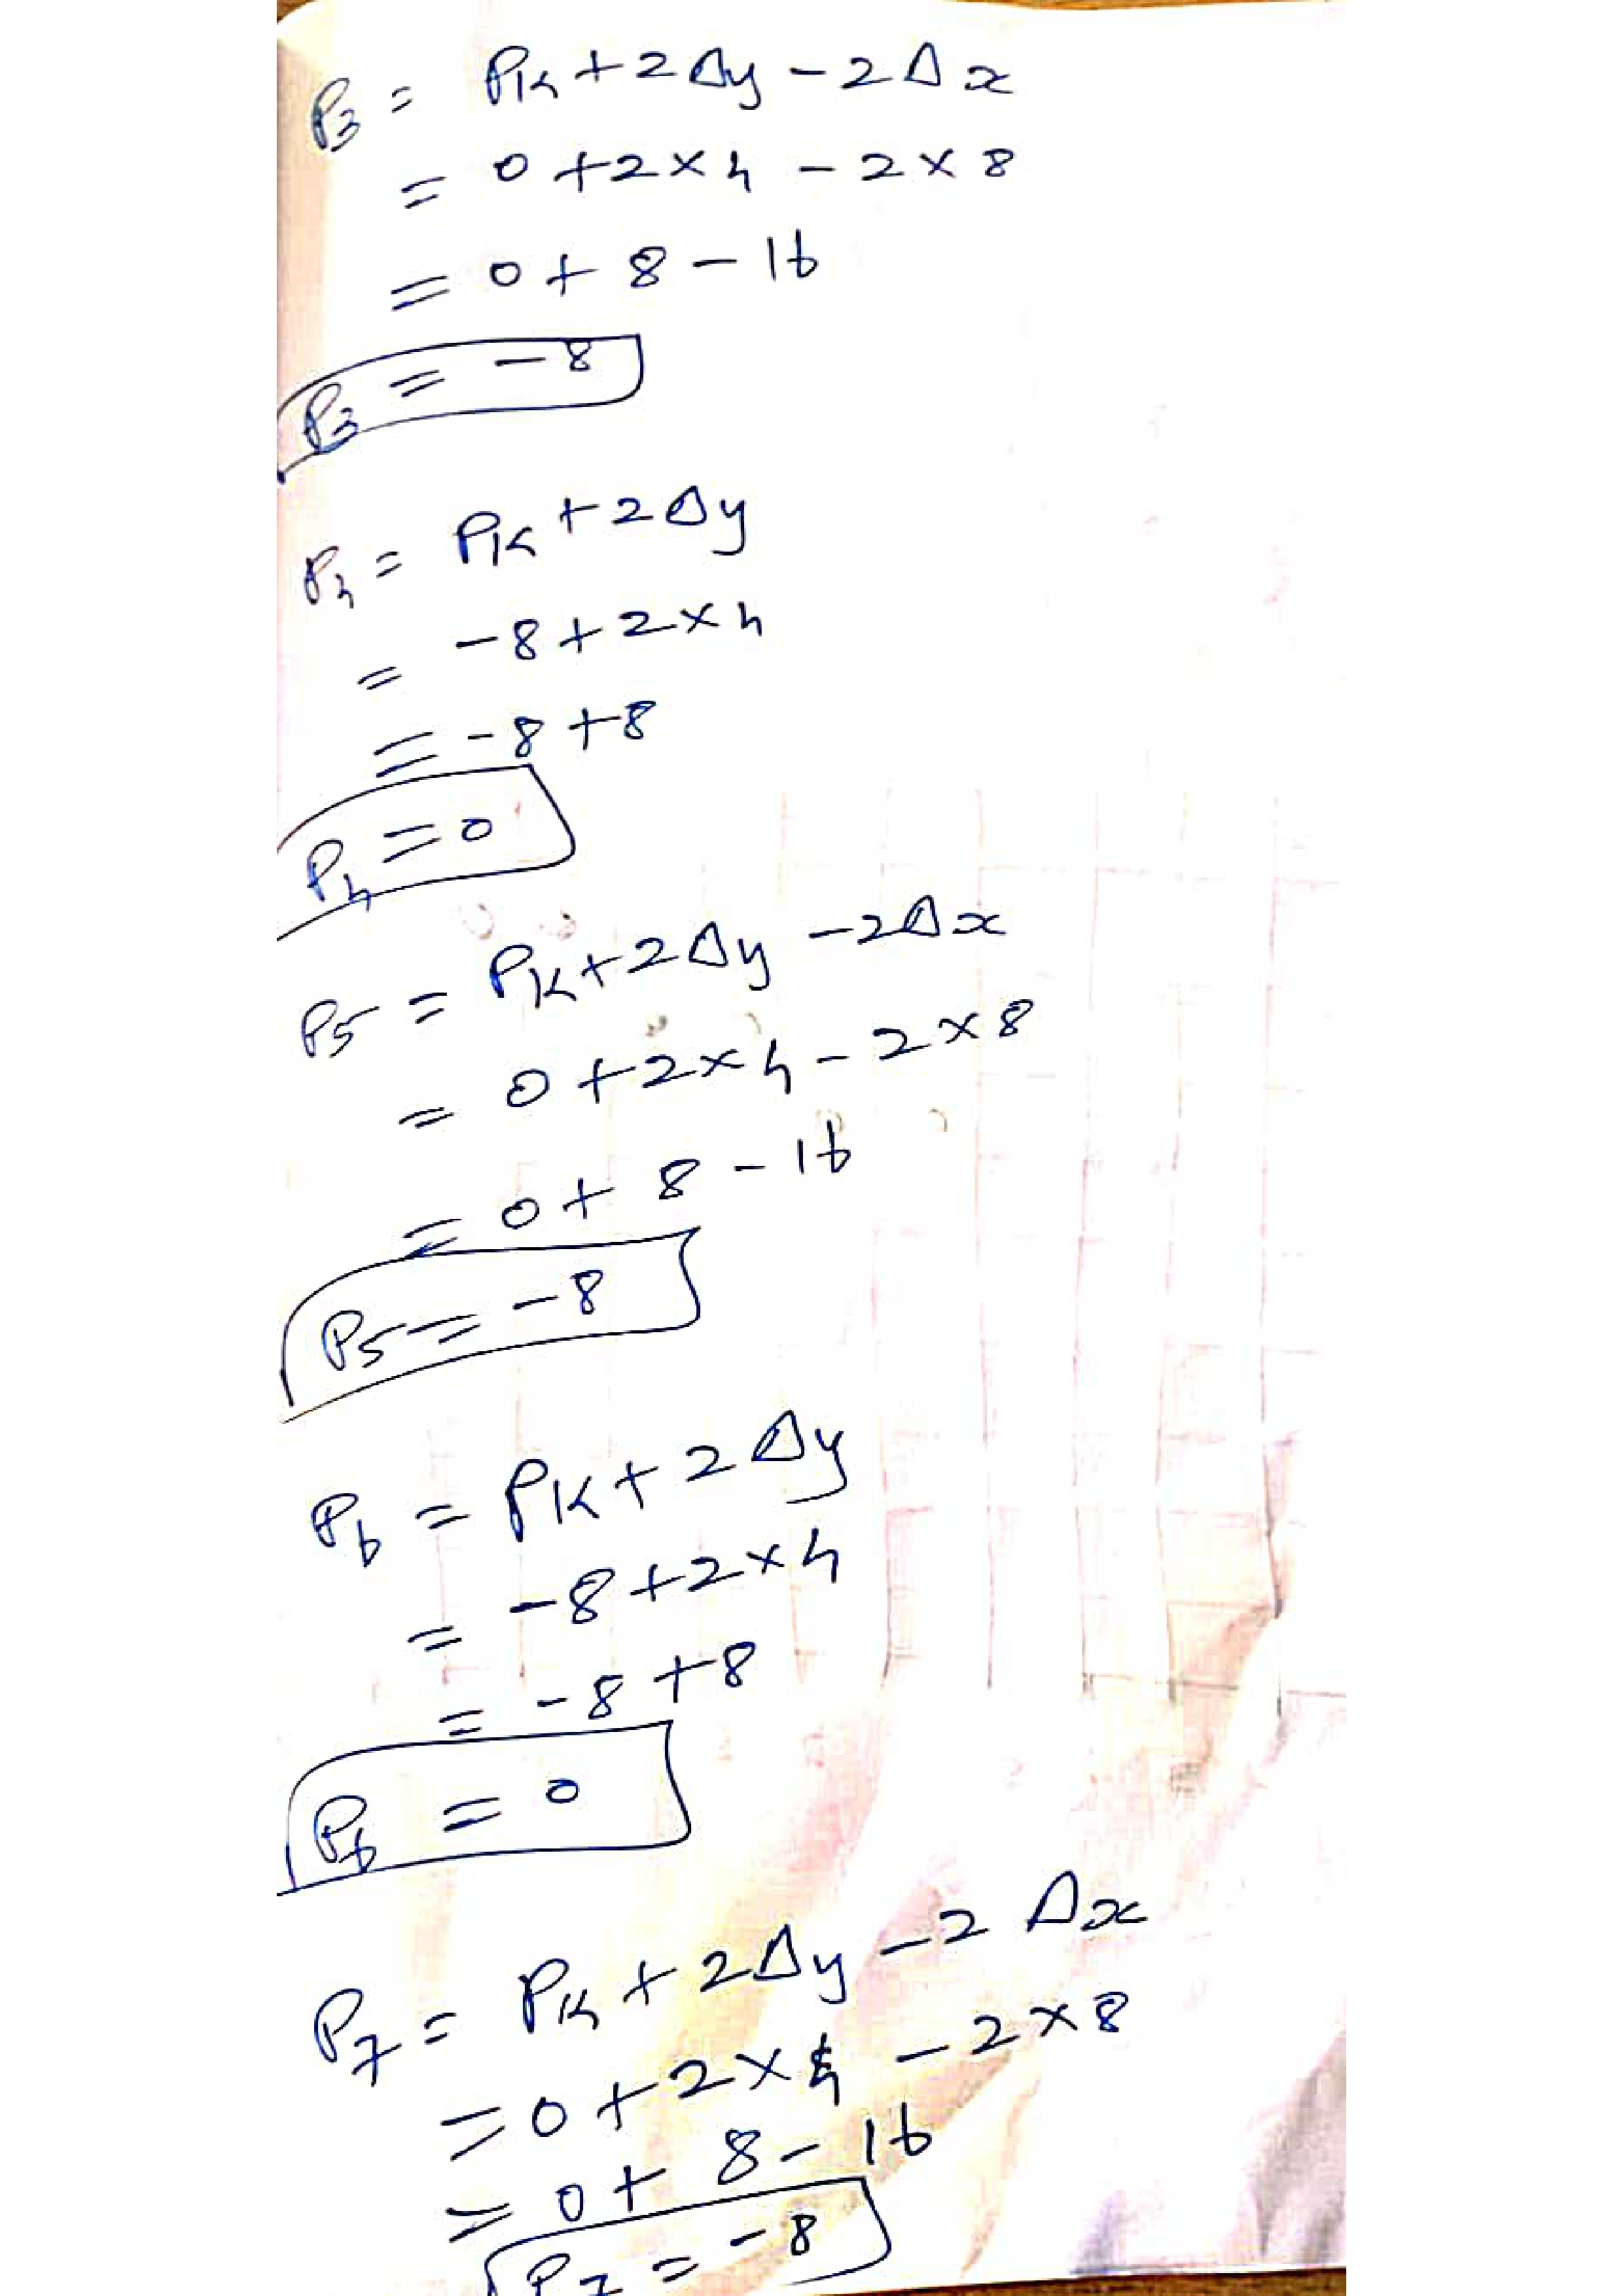 P3 = PK + 2Δy - 2Δx
= 0 + 2 × 4 - 2 × 8
= 0 + 8 - 16
P3 = -8
P4 = PK + 2Δy
= -8 + 2 × 4
= -8 + 8
P4 = 0
P5 = PK + 2Δy - 2Δx
= 0 + 2 × 4 - 2 × 8
= 0 + 8 - 16
P5 = -8
P6 = PK + 2Δy
= -8 + 2 × 4
= -8 + 8
P6 = 0
P7 = PK + 2Δy - 2Δx
= 0 + 2 × 4 - 2 × 8
= 0 + 8 - 16
P7 = -8